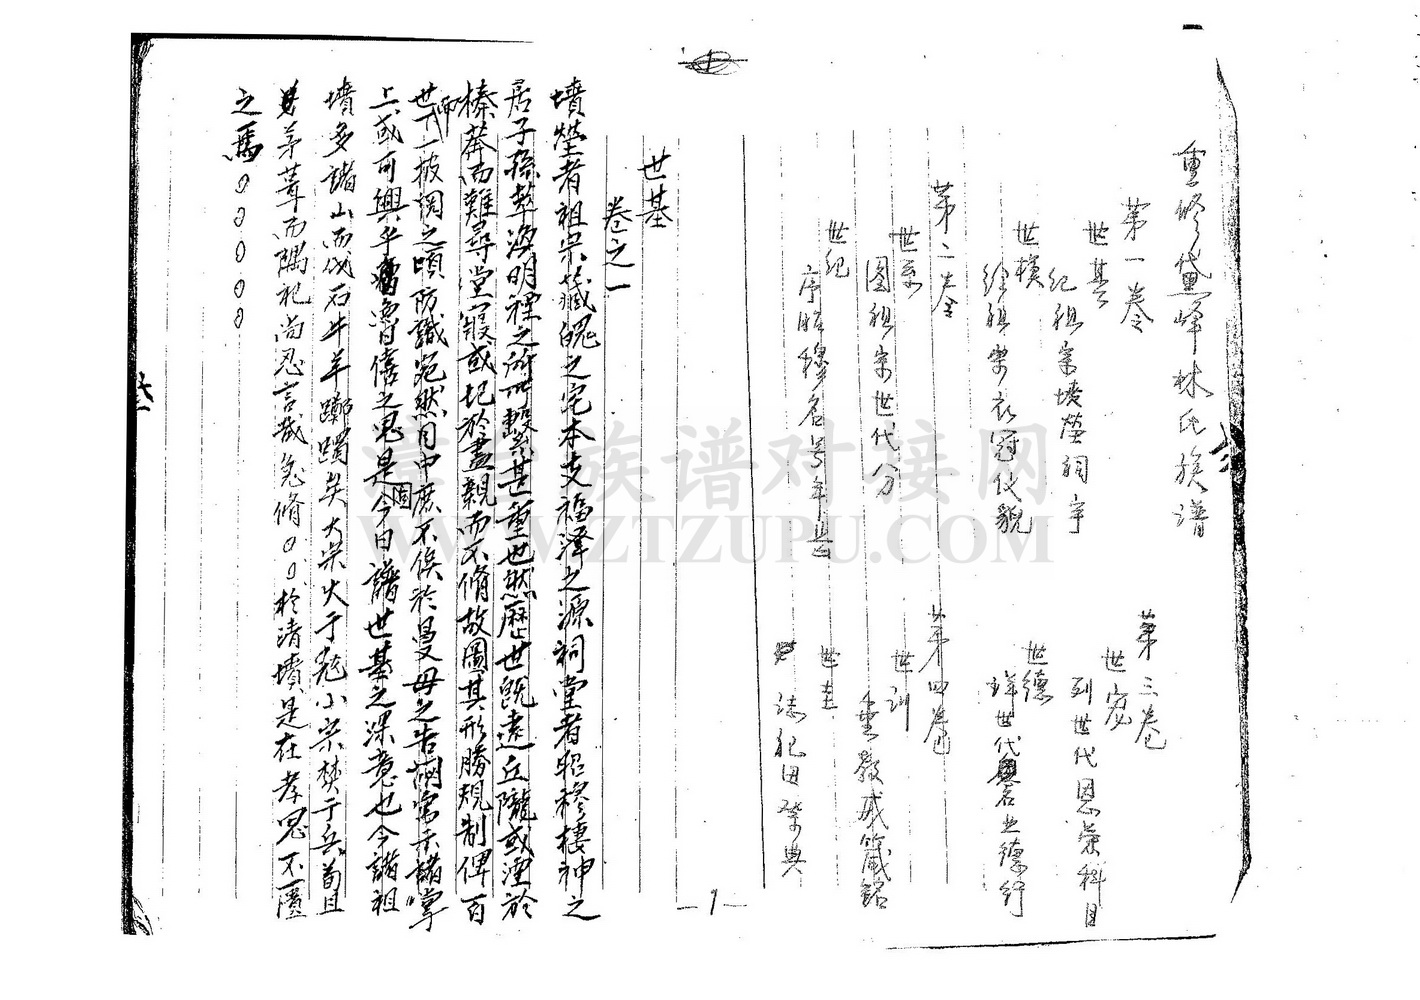 重修黛峰林氏族譜
第一卷
世基
紀祖宗墳塋祠宇
世模
繪祖宗衣冠伏貌
第二卷
世系
圖祖宗世代分
世紀
序昭穆名号年
第三卷
世寵
列世代恩榮科目
世德
詳世代名世德行
第四卷
世訓
垂教戒箴銘
世圭
誌祀田祭典
—1—
世基
卷之一
墳塋者祖宗藏魄之宅本支福澤之源祠堂者昭穆棲神之
居子孫萃渙明禋之所繫甚重也然歷世既遠丘隴或湮於
榛莽而難尋堂寢或圮於盡親而不脩故圖其形勝規制俾百
世而下一披閱之頃防識宛然目中庶不俟於曼母之告惘常示諸掌
上或可興乎魯僖之思是固今日譜世基之深意也今諸祖
墳多諸山而伐石牛羊躑躅矣大宗火于寇小宗焚于兵苟且
茅葺而隅祀尚忍言哉急脩於清墳是在孝思不匱
之焉
漳州族谱对接网
WWW.ZZTZUPU.COM